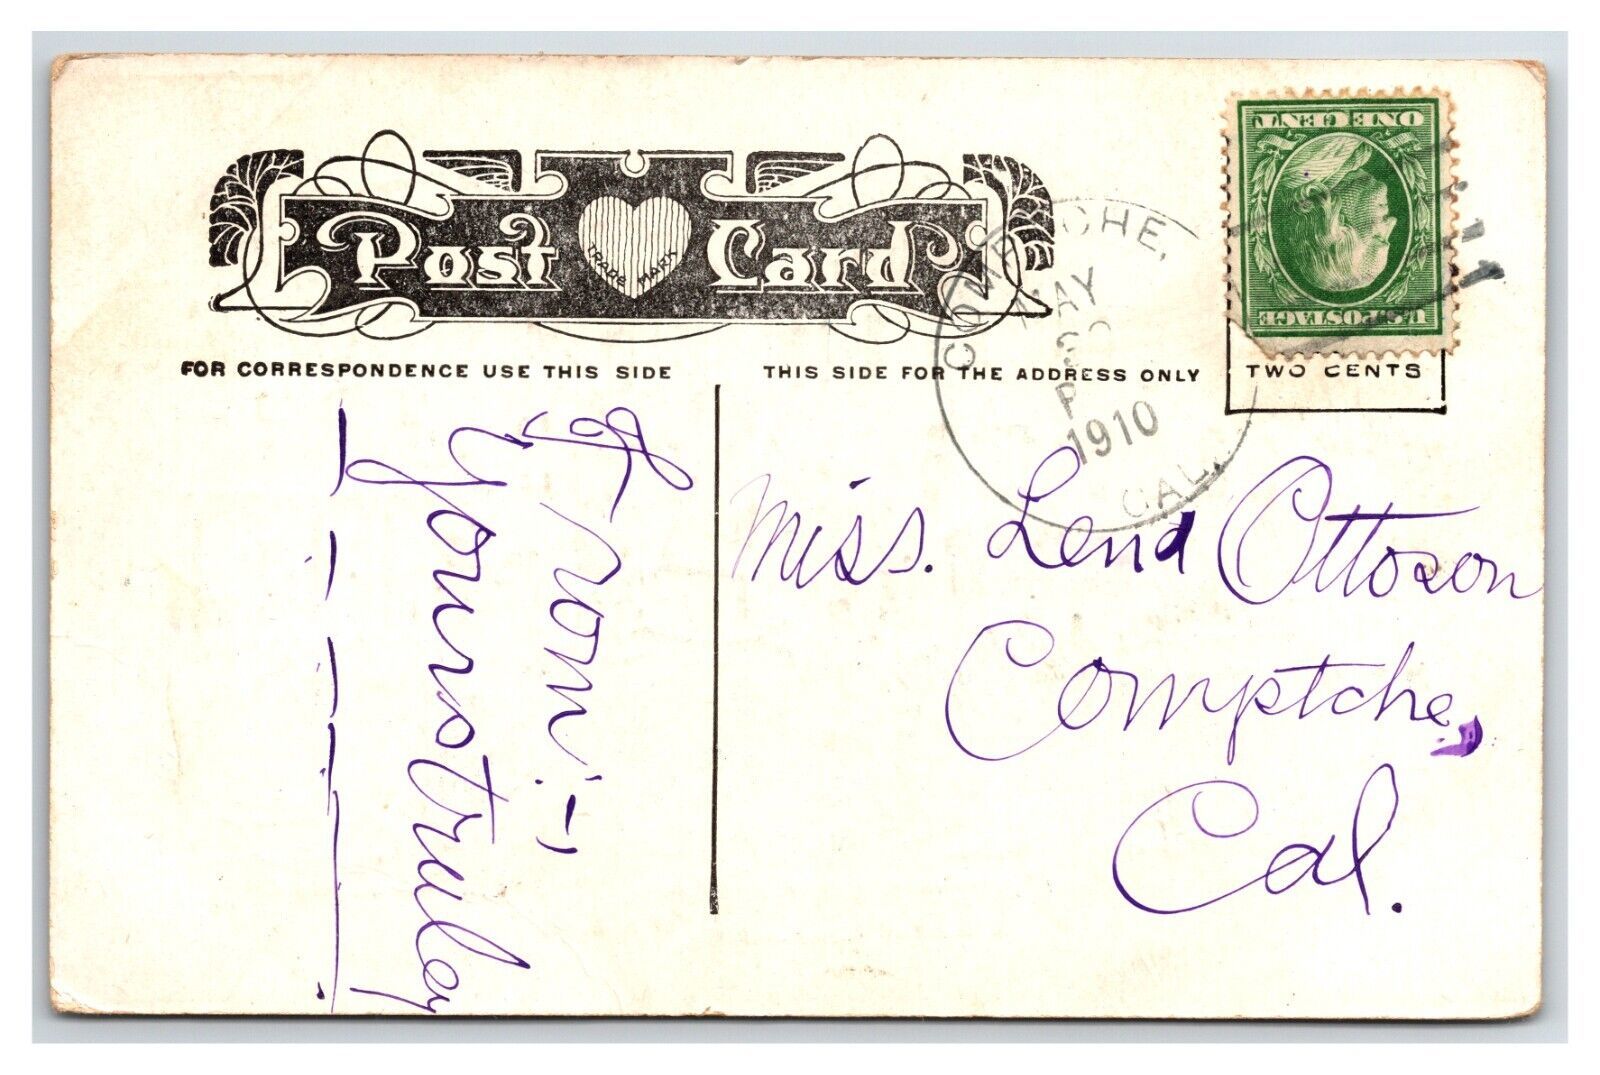 Post Card
TRADE MARK
FOR CORRESPONDENCE USE THIS SIDE
THIS SIDE FOR THE ADDRESS ONLY
ONE CENT
U.S. POSTAGE
TWO CENTS
COMPTCHE,
MAY
1910
CAL.
From:-,
Yours truly
Miss. Lena Ottoson
Comptche,
Cal.